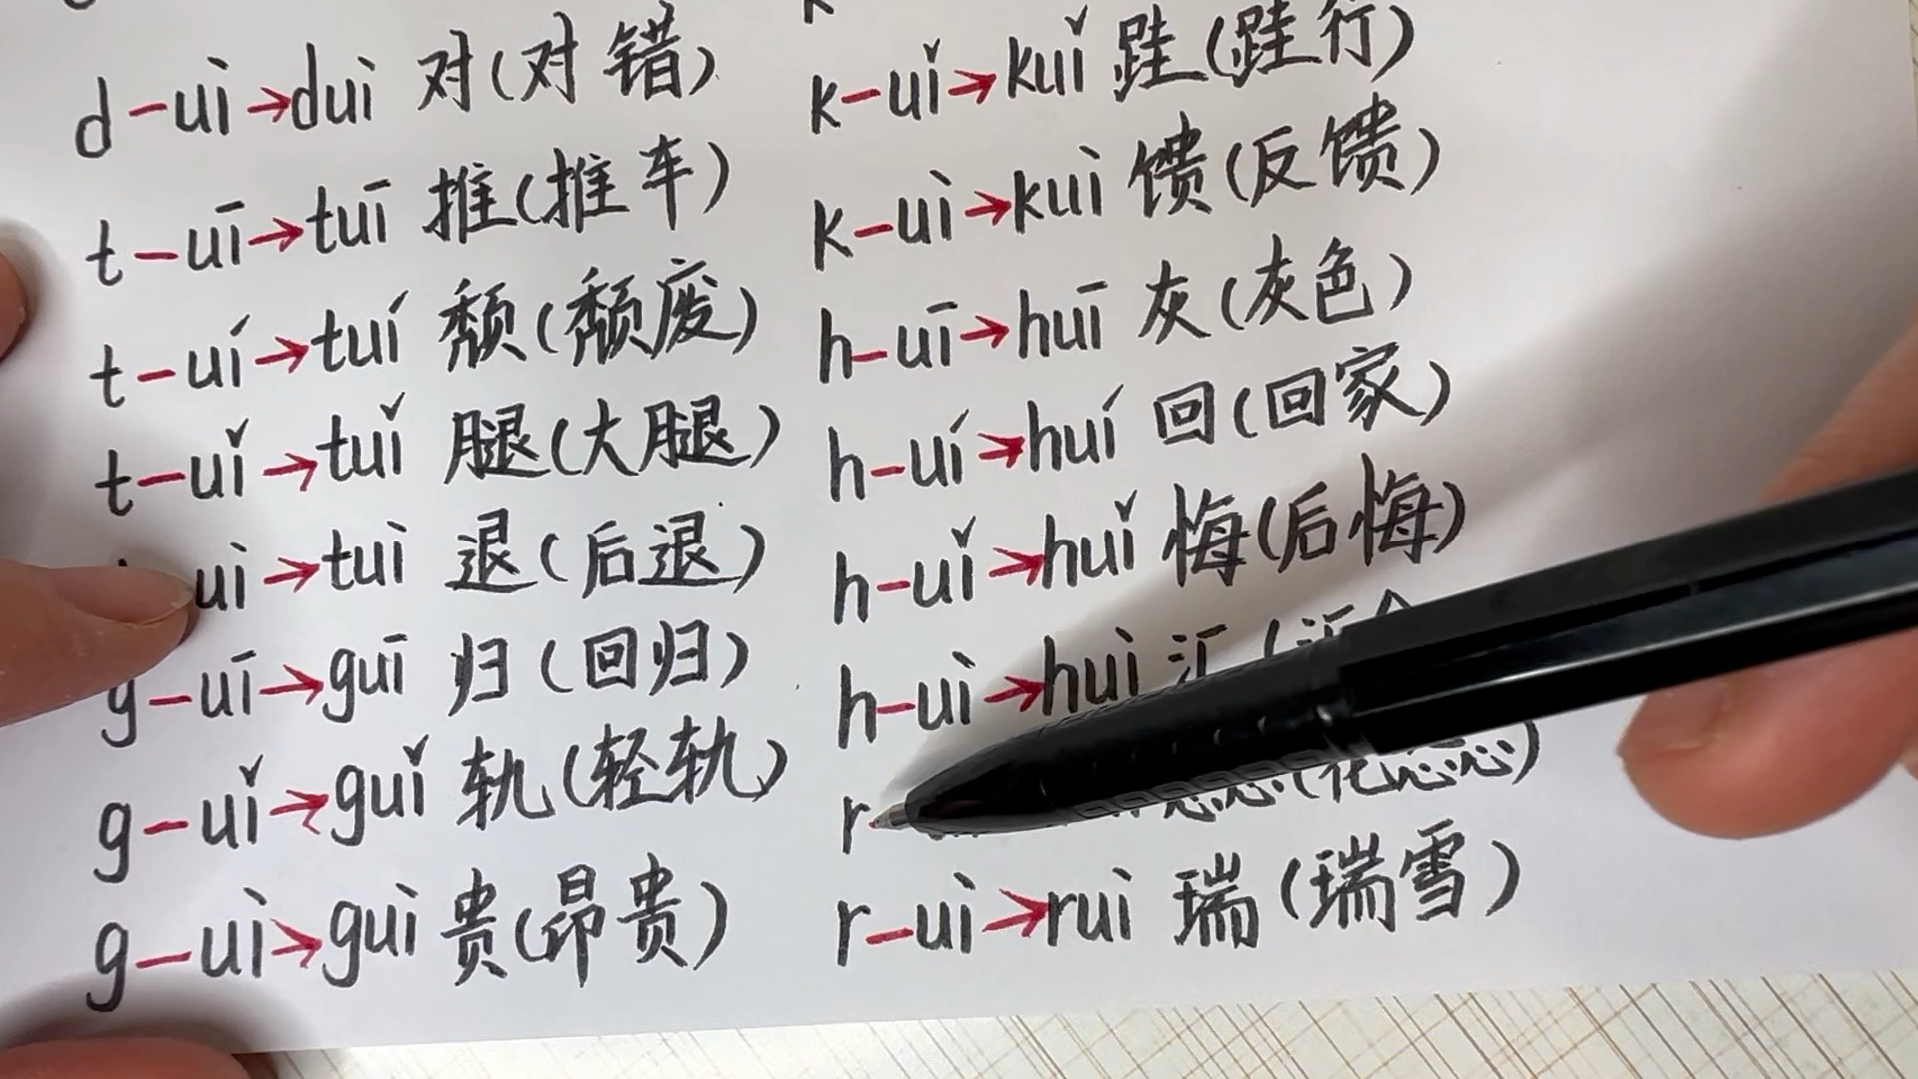 d-uì→duì 对(对错)
t-uī→tuī 推(推车)
t-uí→tuí 颓(颓废)
t-uǐ→tuǐ 腿(大腿)
uì→tuì 退(后退)
g-uī→guī 归(回归)
g-uǐ→guǐ 轨(轻轨)
g-uì→guì 贵(昂贵)
k-uǐ→kuǐ 跬(跬行)
k-uì→kuì 馈(反馈)
h-uī→huī 灰(灰色)
h-uí→huí 回(回家)
h-uǐ→huǐ 悔(后悔)
h-uì→huì 汇(
r-
r-uì→ruì 瑞(瑞雪)